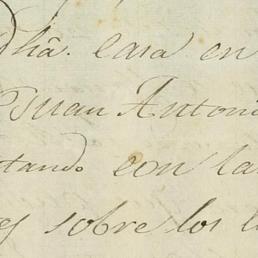 dhâ. casa en
Juan Antoni
tando con la
y sobre los l